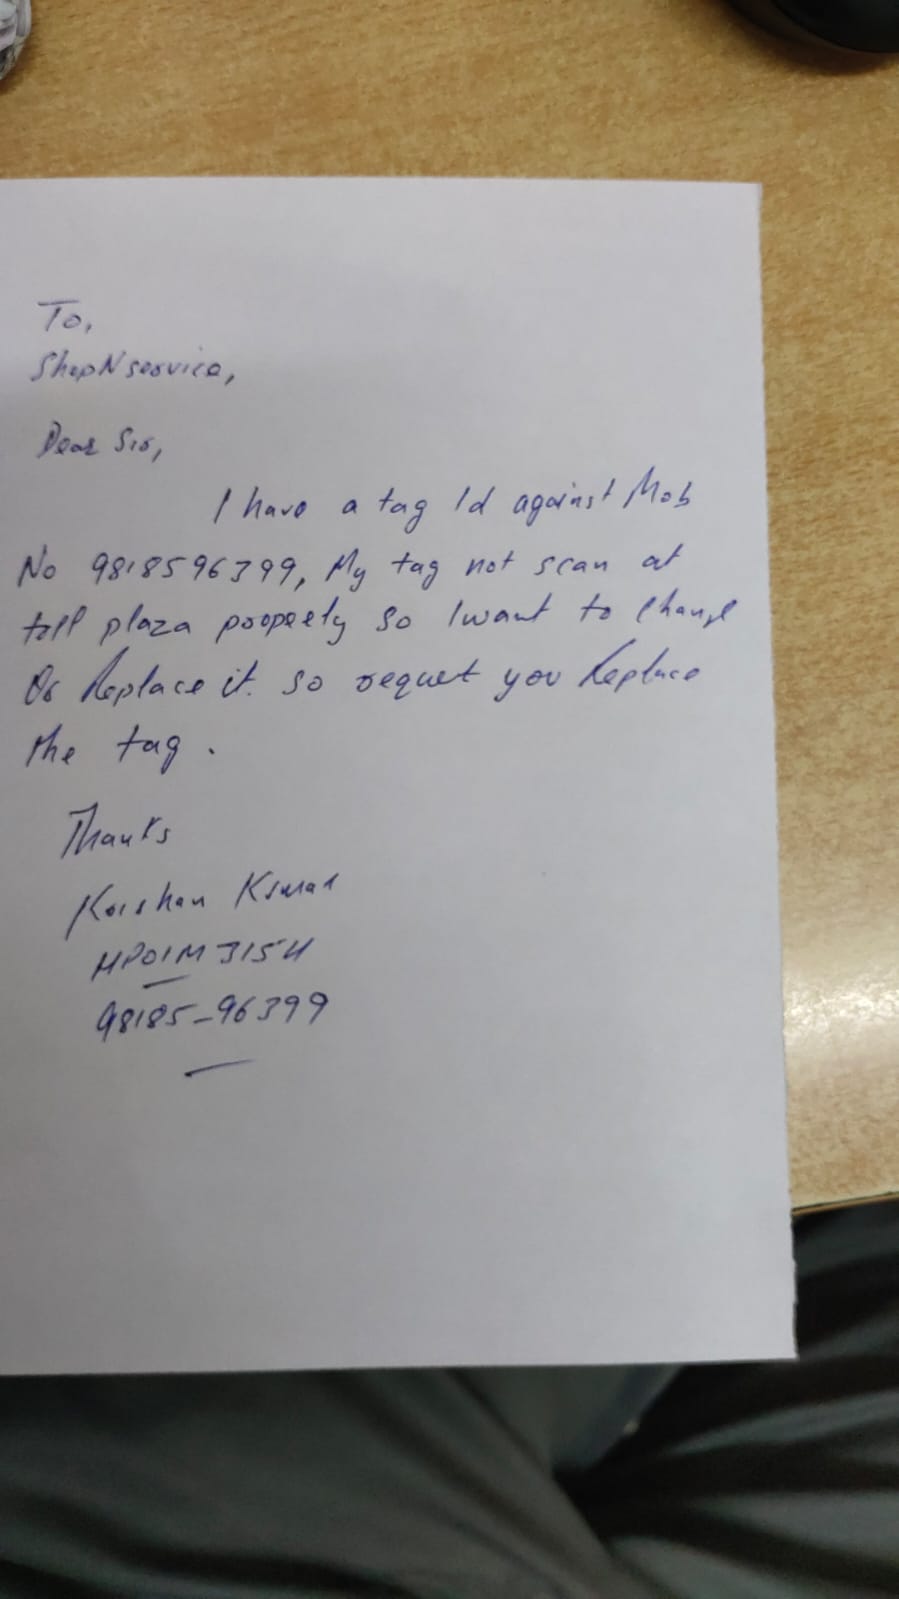 To,
ShopNservice,
Dear Sir,
I have a tag Id against Mob
No 9818596399, My tag not scan at
toll plaza properly so I want to change
Or Replace it. so request you Replace
the tag.
Thanks
Krishan Kumar
HP01M3154
98185-96399